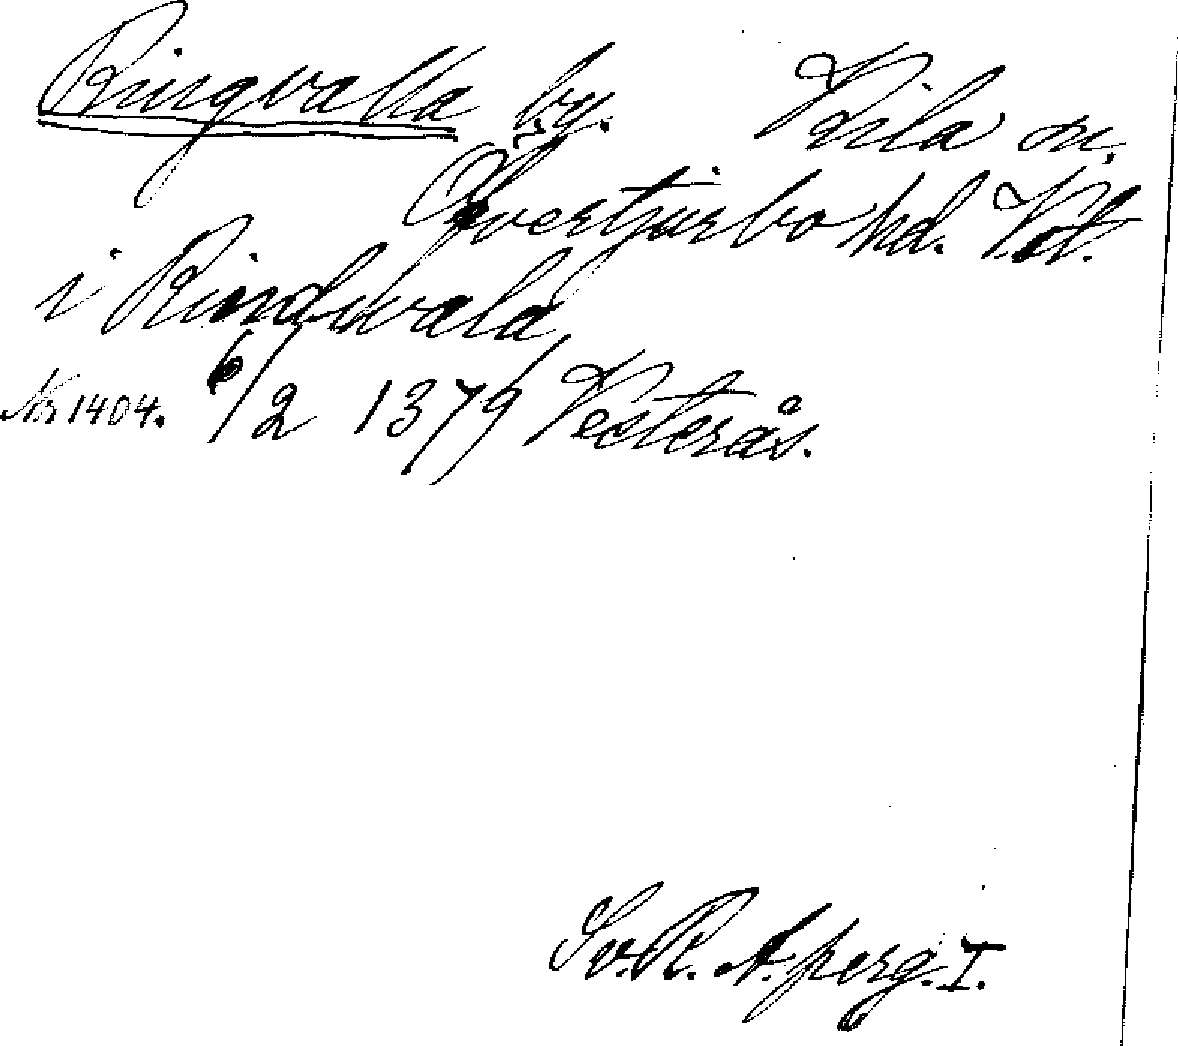 Ringvalla by. Kila sn.
Övertjurbo hd. Vstm.
i Rindwald
Nr 1404. 6/2 1379 Vesterås.
Sv. R. A. perg. I.